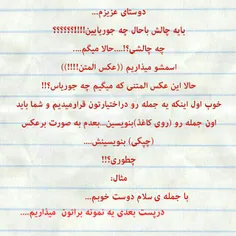 دوستای عزیزم...
بایه چالش باحال چه جوریایین!!!!؟؟؟؟؟؟
چه چالشی؟!....حالا میگم....
اسمشو میذاریم ((عکس المتن!!!!))
حالا این عکس المتنی که میگیم چه جوریاس؟!!
خوب اول اینکه یه جمله رو دراختیارتون قرارمیدیم و شما باید
اون جمله رو (روی کاغذ)بنویسین...بعدم به صورت برعکس
(چپکی) بنویسینش....
چطوری؟!!
مثال:
با جمله ی سلام دوست خوبم...
درپست بعدی یه نمونه براتون میذاریم....